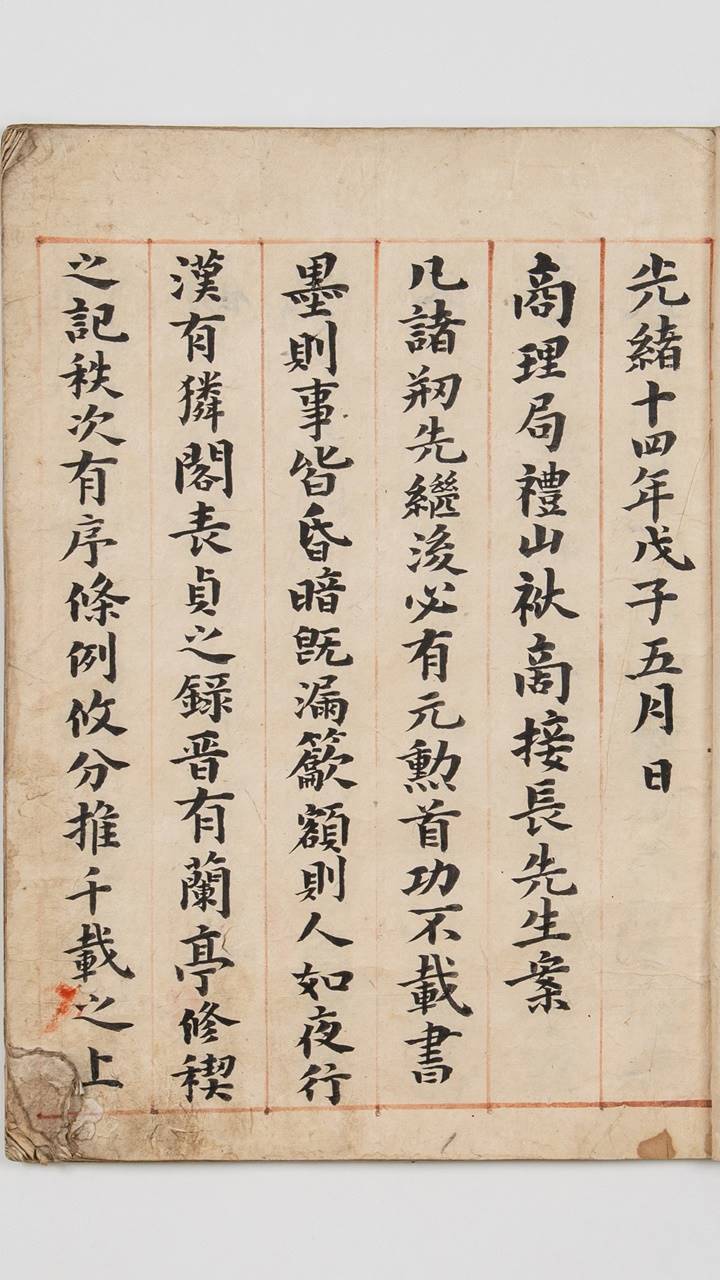 光緖十四年戊子五月日
商理局禮山袱商接長先生案
凡諸刱先繼後必有元勳首功不載書
墨則事皆昏暗旣漏籲額則人如夜行
漢有獜閣表貞之錄晋有蘭亭修禊
之記秩次有序條例攸分推千載之上